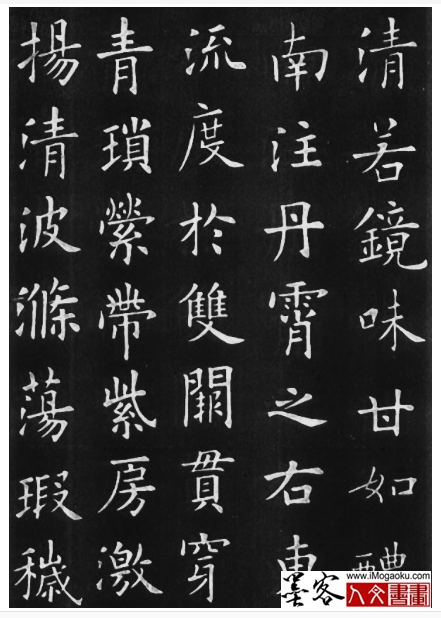 清若鏡味甘如醴
南注丹霄之右東
流度於雙闕貫穿
青瑣縈帶紫房激
揚清波滌蕩瑕穢
墨客
www.iMogaoku.com
人文書畫